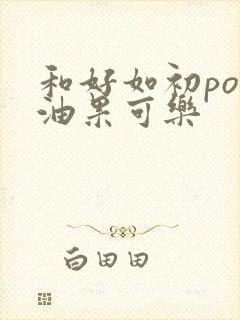 和好如初po
油果可樂
白田田